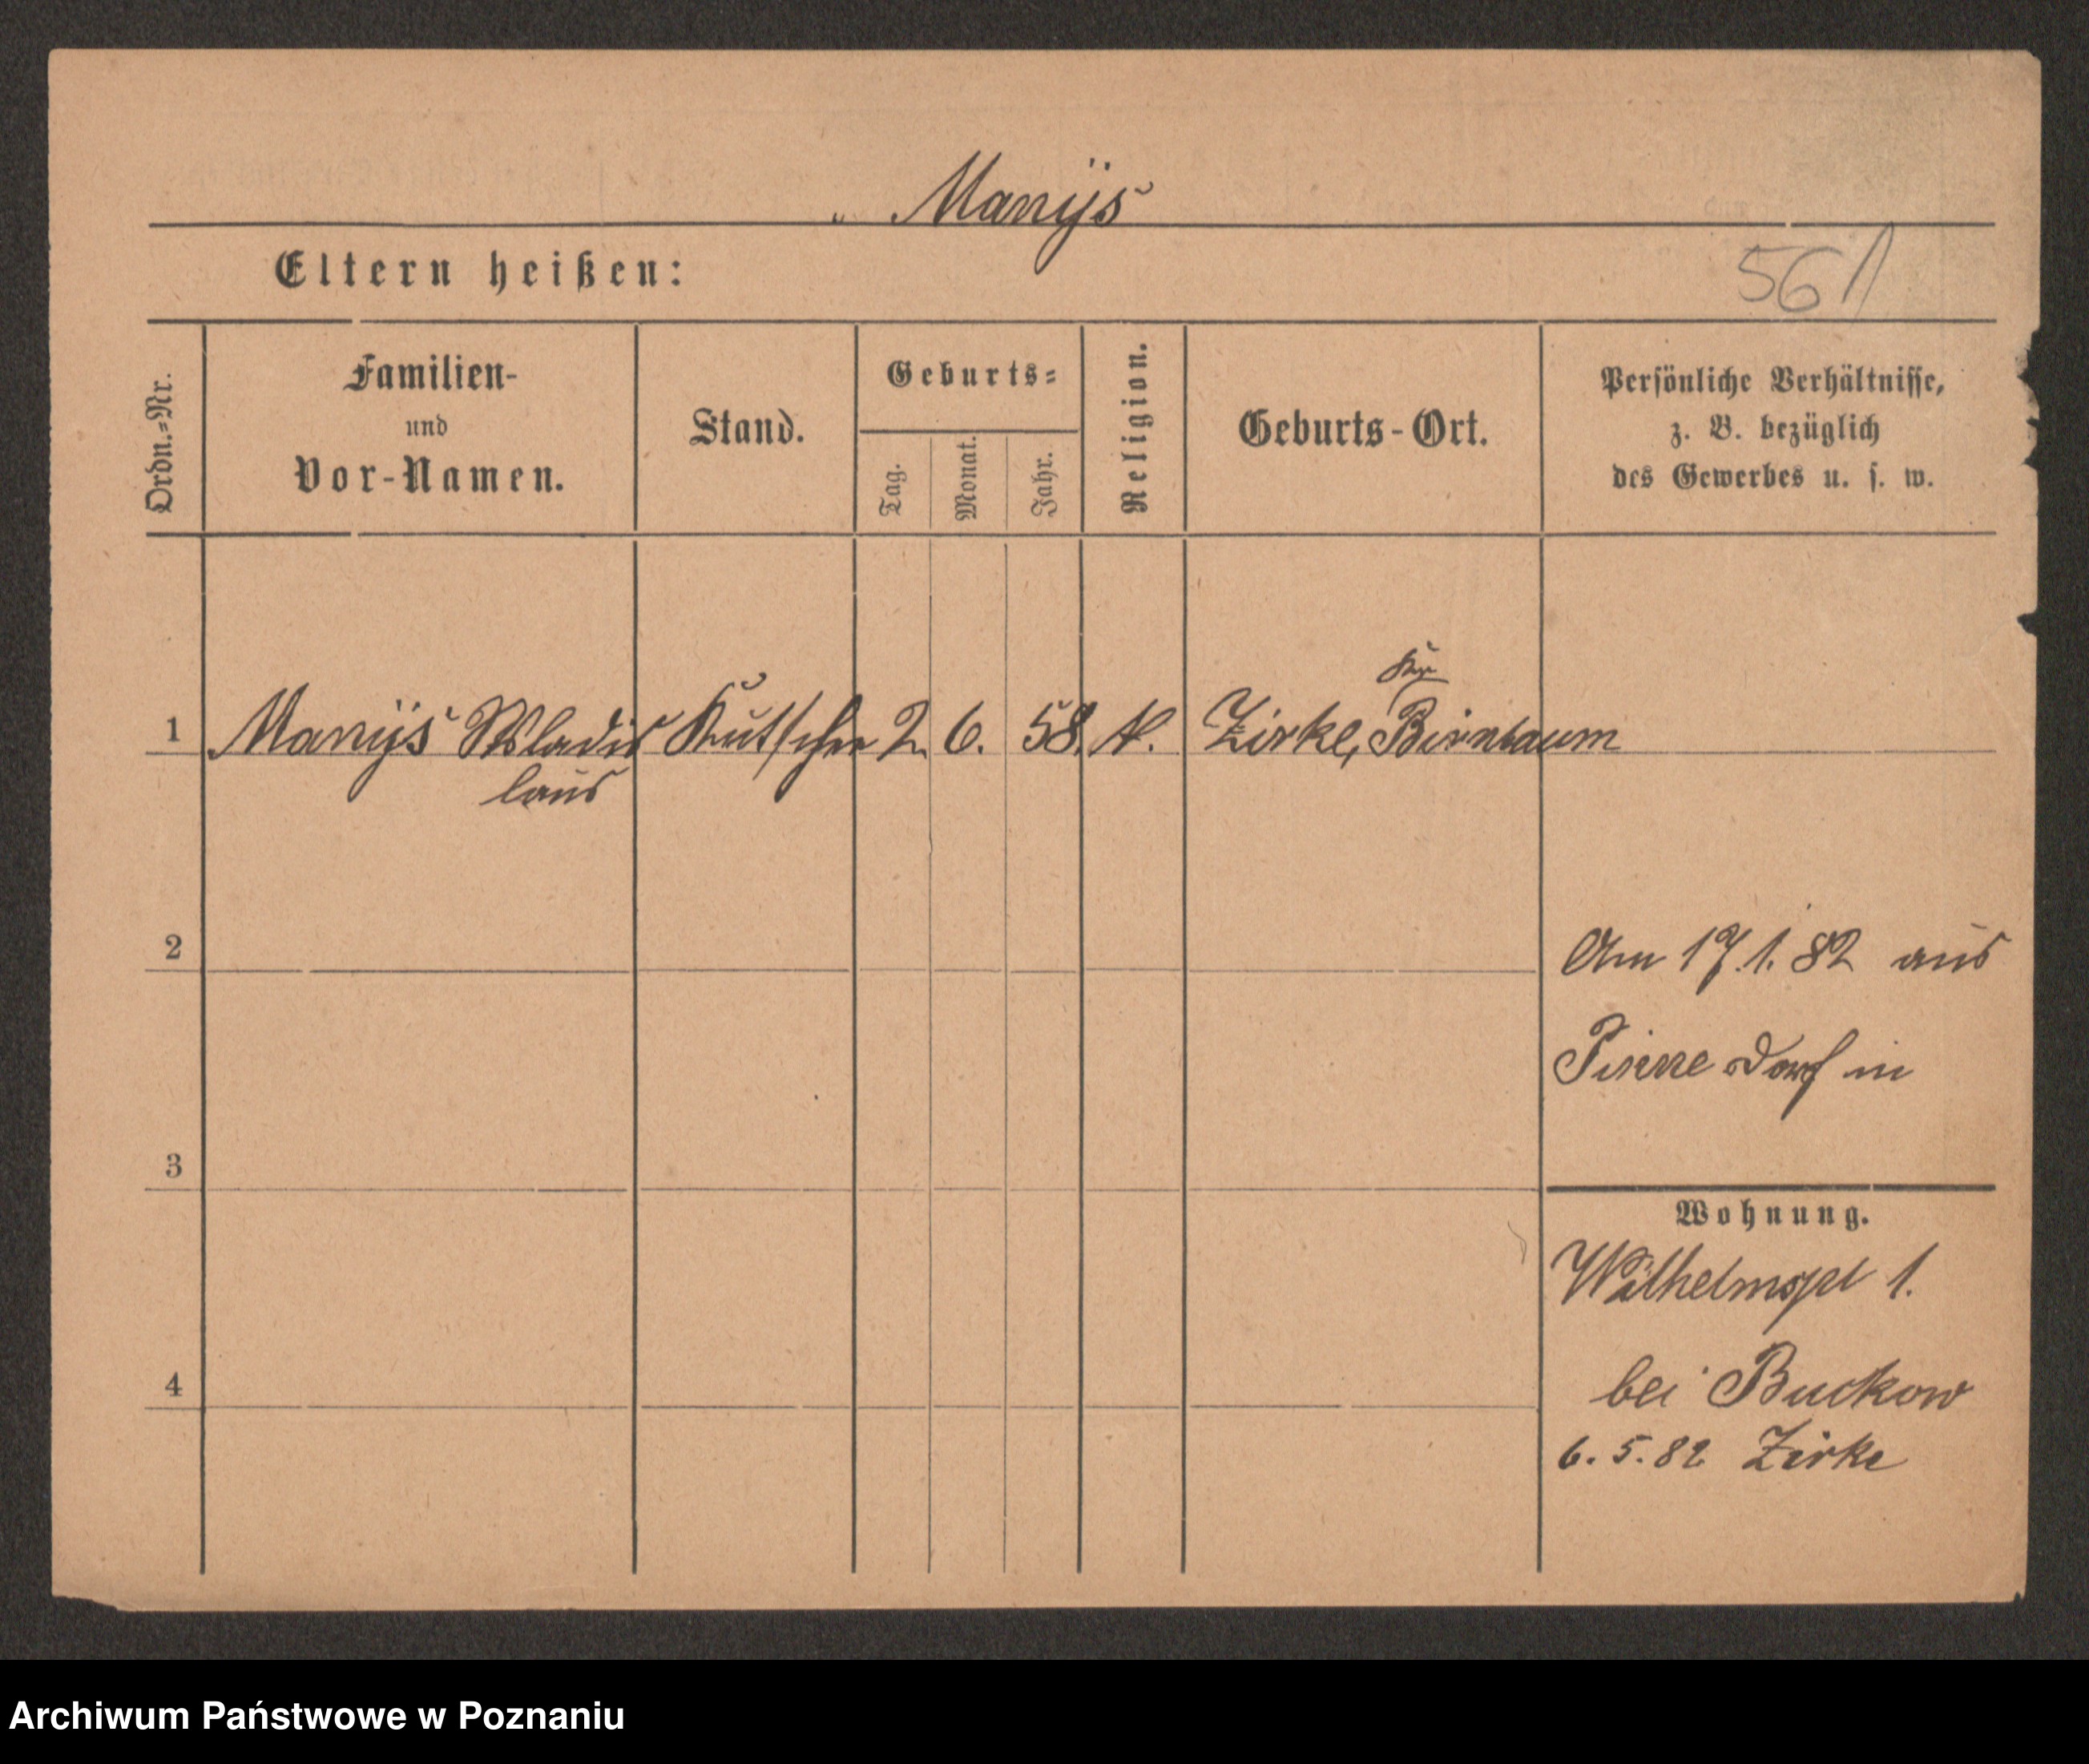 Manÿs
Eltern heißen:
561
Ordn.=Nr.
Familien-
und
Vor-Namen.
Stand.
Geburts=
Tag.
Monat.
Jahr.
Religion.
Geburts-Ort.
Persönliche Verhältnisse,
z. B. bezüglich
des Gewerbes u. s. w.
1 Manÿs Wladis Kutscher 2. 6. 58. K. Zirke, Birnbaum
laus
2
Am 17.1.82 aus
Pinne Dorf in
3
Wohnung.
Wilhelmspl 1.
4
bei Buckow
6.5.82 Zirke
Archiwum Państwowe w Poznaniu